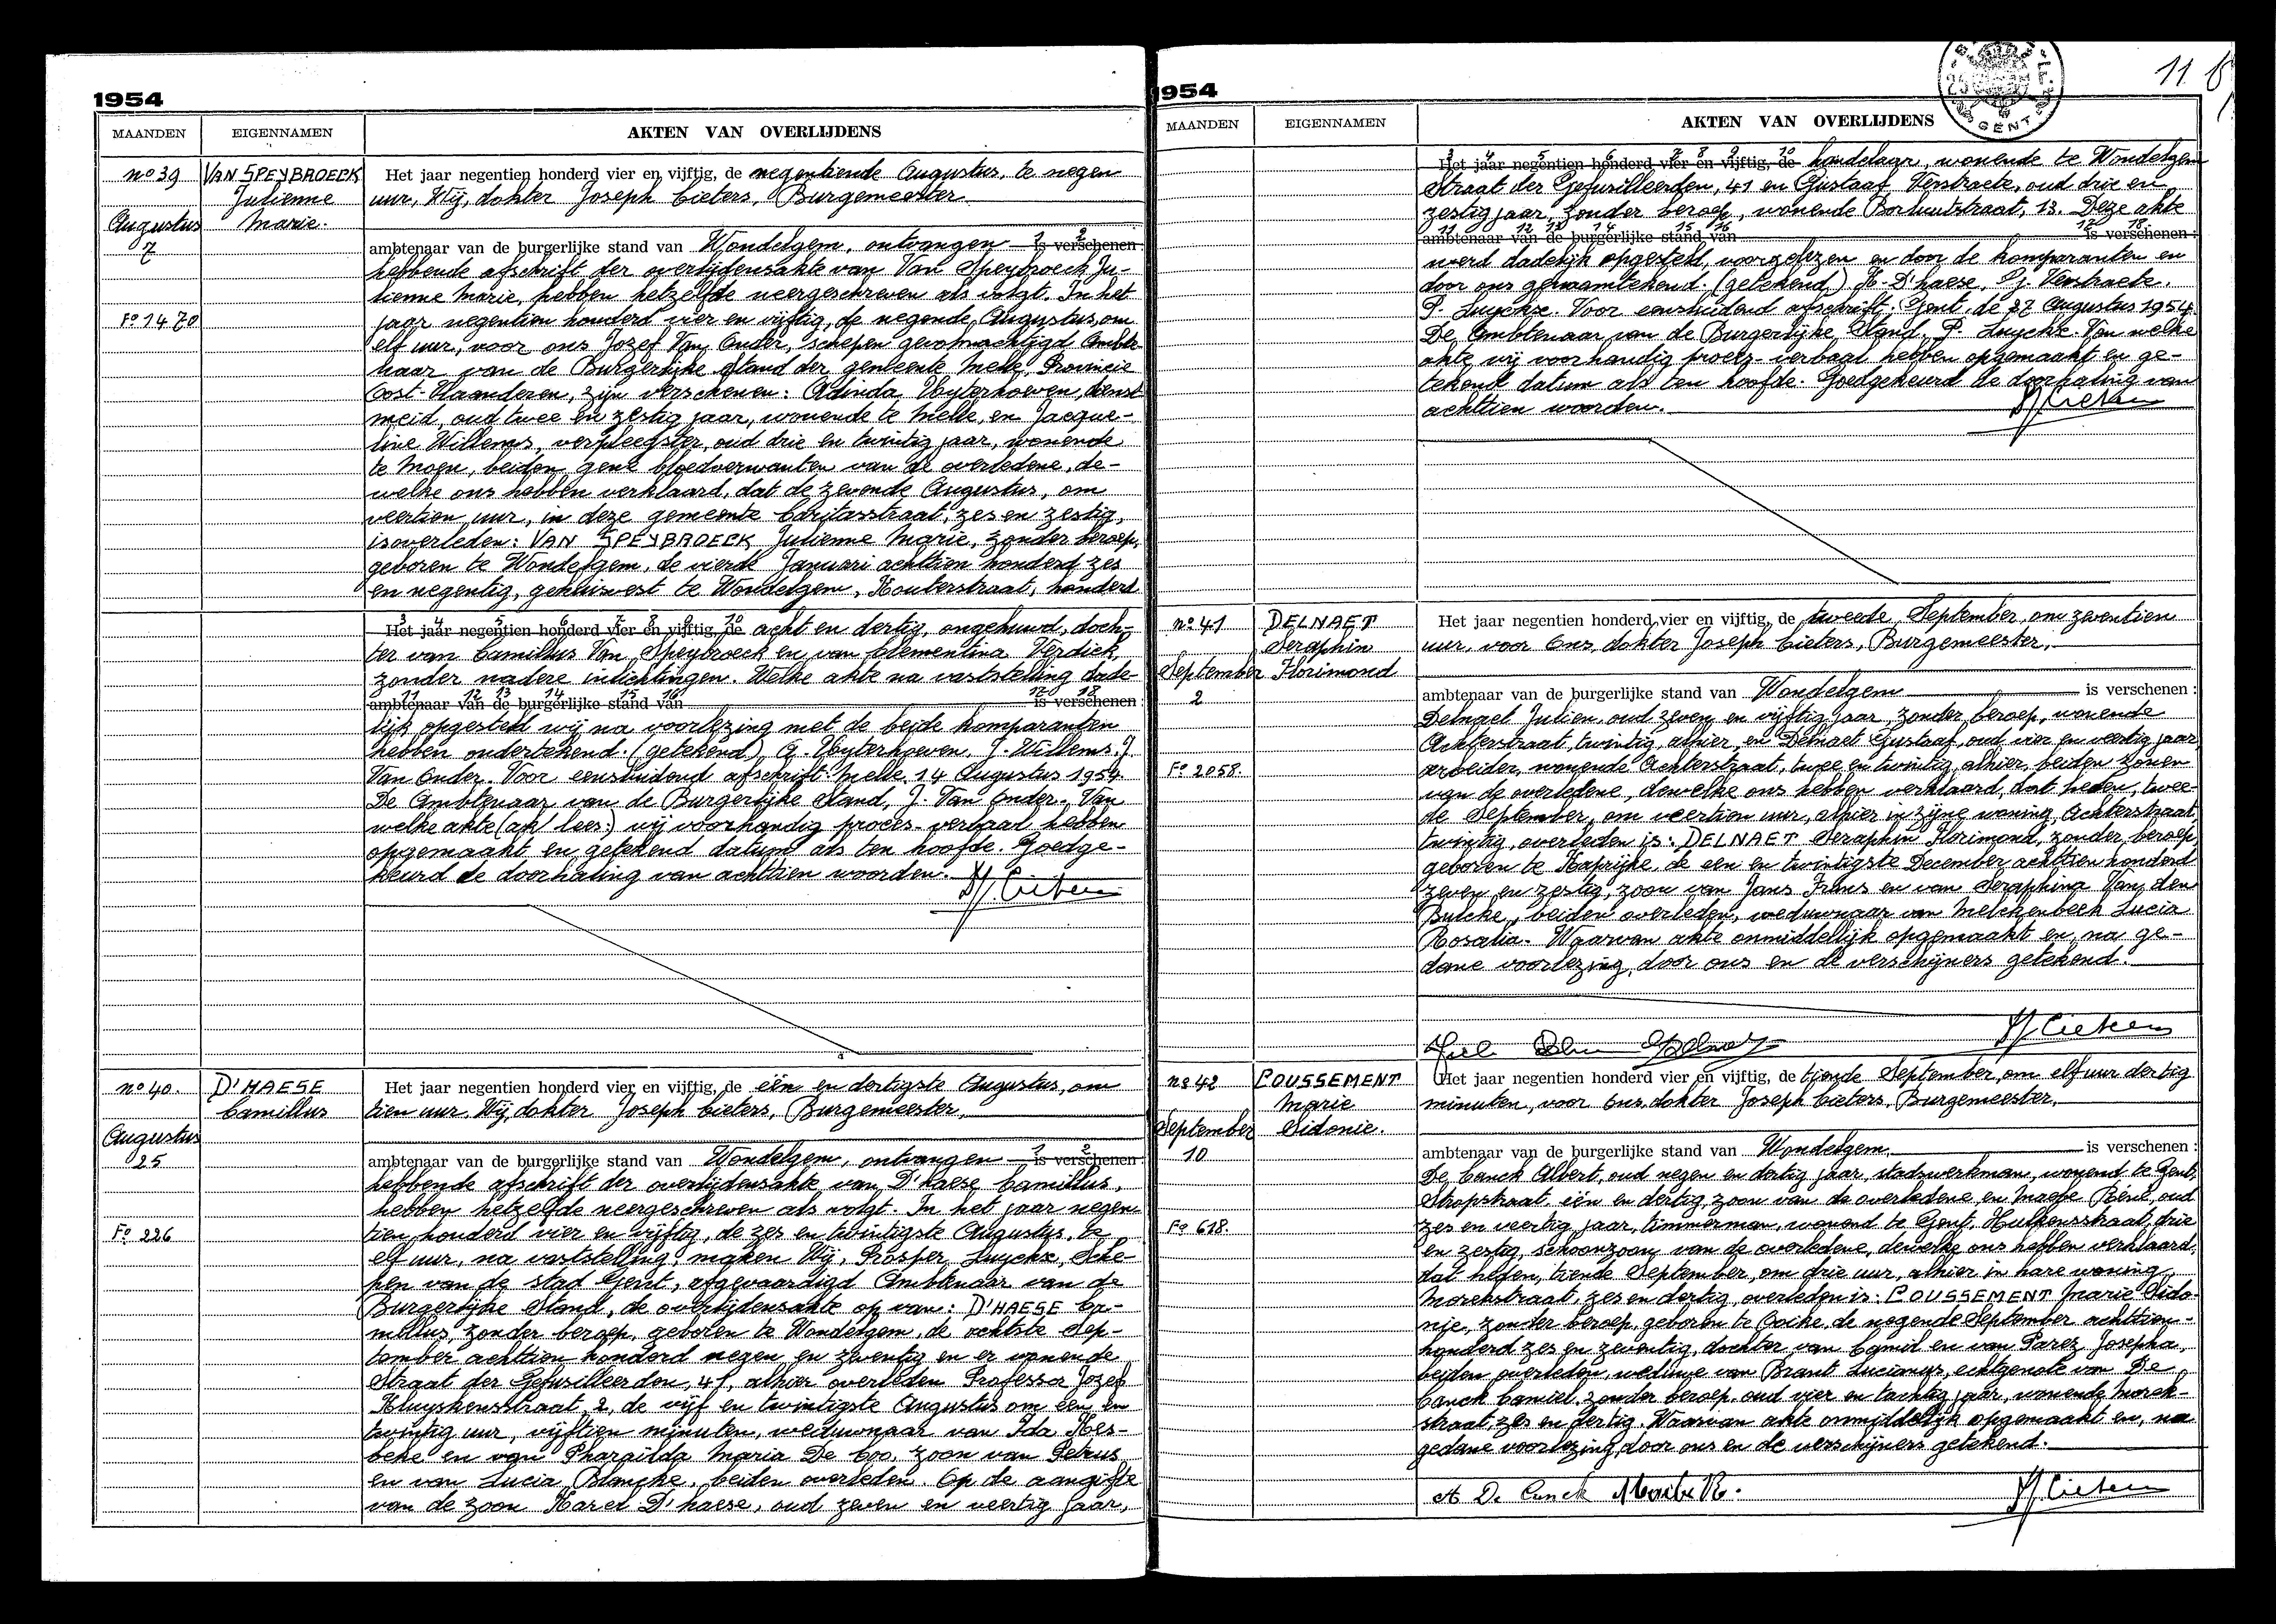 1954
MAANDEN EIGENNAMEN AKTEN VAN OVERLIJDENS
nº 39 VAN SPEYBROECK Julienne Marie.
Augustus 7
Fº 1470
Het jaar negentien honderd vier en vijftig, de negentiende Augustus, te negen
uur, Wij, dokter Joseph Cieters, Burgemeester
ambtenaar van de burgerlijke stand van Wondelgem, ontvangen is verschenen:
hebbende afschrift der overlijdensakte van Van Speybroeck Ju-
lienne Marie, hebben hetzelfde neergeschreven als volgt. In het
jaar negentien honderd vier en vijftig, de negende Augustus, om
elf uur, voor ons Jozef Van Onder, schepen gevolmachtigd Ambte-
naar van de Burgerlijke Stand der gemeente Melle, Provincie
Oost-Vlaanderen, zijn verschenen: Adinda Uyterhoeven, dienst
meid, oud twee en zestig jaar, wonende te Melle, en Jacque-
line Willems, verpleegster, oud drie en twintig jaar, wonende
te Moen, beiden gene bloedverwanten van de overledene, de-
welke ons hebben verklaard, dat de zevende Augustus, om
veertien uur, in deze gemeente Caritasstraat, zes en zestig,
is overleden: VAN SPEYBROECK Julienne Marie, zonder beroep,
geboren te Wondelgem, de vierde Januari achttien honderd zes
en negentig, gehuisvest te Wondelgem, Kouterstraat, honderd
3 4 5 6 7 8 9 10
Het jaar negentien honderd vier en vijftig, de acht en dertig, ongehuwd, doch-
ter van Camillus Van Speybroeck en van Clementina Verdick,
zonder nadere inlichtingen. Welke akte na vaststelling dade-
11 12 13 14 15 16 17 18
ambtenaar van de burgerlijke stand van is verschenen:
lijk opgesteld wij na voorlezing met de beide komparanten
hebben ondertekend. (getekend) A. Uyterhoeven. J. Willems. J.
Van Onder. Voor eensluidend afschrift: Melle, 14 Augustus 1954.
De Ambtenaar van de Burgerlijke Stand, J. Van Onder. Van
welke akte wij voorhandig proces-verbaal hebben
opgemaakt en getekend datum als ten hoofde. Goedge-
keurd de doorhaling van achttien woorden.
nº 40. D'HAESE Camillus
Augustus 25
Fº 226
Het jaar negentien honderd vier en vijftig, de één en dertigste Augustus, om
tien uur, Wij, dokter Joseph Cieters, Burgemeester,
ambtenaar van de burgerlijke stand van Wondelgem, ontvangen is verschenen:
hebbende afschrift der overlijdensakte van D'haese Camillus,
hebben hetzelfde neergeschreven als volgt. In het jaar negen-
tien honderd vier en vijftig, de zes en twintigste Augustus, te
elf uur, na vaststelling, maken Wij, Prosper Luyckx, Sche-
pen van de stad Gent, afgevaardigd Ambtenaar van de
Burgerlijke Stand, de overlijdensakte op van: D'HAESE Ca-
millus, zonder beroep, geboren te Wondelgem, de achtste Sep-
tember achttien honderd negen en zeventig en er wonende
Straat der Gefusilleerden, 41, alhier overleden Professor Jozef
Kluyskensstraat, 2, de vijf en twintigste Augustus om één en
twintig uur, vijftien minuten, weduwnaar van Ida Kes-
beke en van Pharaïlda Maria De Coo, zoon van Petrus
en van Lucia Blancke, beiden overleden. Op de aangifte
van de zoon Karel D'haese, oud zeven en veertig jaar,
1954
11
GENT
MAANDEN EIGENNAMEN AKTEN VAN OVERLIJDENS
3 4 5 6 7 8 9 10
Het jaar negentien honderd vier en vijftig, de handelaar, wonende te Wondelgem
Straat der Gefusilleerden, 41 en Gustaaf Verstraete, oud drie en
zestig jaar, zonder beroep, wonende Borluutstraat, 13. Deze akte
11 12 13 14 15 16 17 18
ambtenaar van de burgerlijke stand van is verschenen:
werd dadelijk opgesteld, voorgelezen en door de komparanten en
door ons genaamtekend. (getekend) K. D'haese, G. Verstraete.
P. Luyckx. Voor eensluidend afschrift: Gent, de 27 Augustus 1954.
De Ambtenaar van de Burgerlijke Stand, P. Luyckx. Van welke
akte wij voorhandig proces-verbaal hebben opgemaakt en ge-
tekend datum als ten hoofde. Goedgekeurd de doorhaling van
achttien woorden.
nº 41 DELNAET Seraphin Florimond
September 2
Fº 2058.
Het jaar negentien honderd vier en vijftig, de tweede September, om zeventien
uur, voor Ons, dokter Joseph Cieters, Burgemeester,
ambtenaar van de burgerlijke stand van Wondelgem is verschenen:
Delnaet Julien, oud zeven en vijftig jaar, zonder beroep, wonende
Achterstraat, twintig, alhier, en Delnaet Gustaaf, oud vier en veertig jaar,
arbeider, wonende Achterstraat, twee en twintig, alhier, beiden zonen
van de overledene, dewelke ons hebben verklaard, dat heden, twee-
de September, om veertien uur, alhier in zijne woning, Achterstraat,
twintig, overleden is: DELNAET Seraphin Florimond, zonder beroep,
geboren te Kaprijke, de een en twintigste December achttien honderd
zeven en zestig, zoon van Jans Frans en van Seraphina Van den
Bulcke, beiden overleden, weduwnaar van Melckenbeek Lucia
Rosalia. Waarvan akte onmiddellijk opgemaakt en, na ge-
dane voorlezing, door ons en de verschijners getekend.
nº 42 COUSSEMENT Marie Sidonie.
September 10
Fº 618.
Het jaar negentien honderd vier en vijftig, de tiende September, om elf uur dertig
minuten, voor Ons, dokter Joseph Cieters, Burgemeester,
ambtenaar van de burgerlijke stand van Wondelgem is verschenen:
De Canck Albert, oud negen en dertig jaar, stadswerkman, wonend te Gent,
Stropstraat, één en dertig, zoon van de overledene en René, oud
zes en veertig jaar, timmerman, wonend te Gent, drie
en zestig, schoonzoon van de overledene, dewelke ons hebben verklaard,
dat heden, tiende September, om drie uur, alhier in hare woning,
Morekstraat, zes en dertig, overleden is: COUSSEMENT Marie Sido-
nie, zonder beroep, geboren te Ooike, de negende September achttien-
honderd zes en zeventig, dochter van Camil en van Parez Josepha,
beiden overleden, weduwe van Brant Lucianus, echtgenote van De
Canck Camiel, zonder beroep, oud vier en tachtig jaar, wonende Morek-
straat, zes en dertig. Waarvan akte onmiddellijk opgemaakt en, na
gedane voorlezing, door ons en de verschijners getekend.
A De Canck